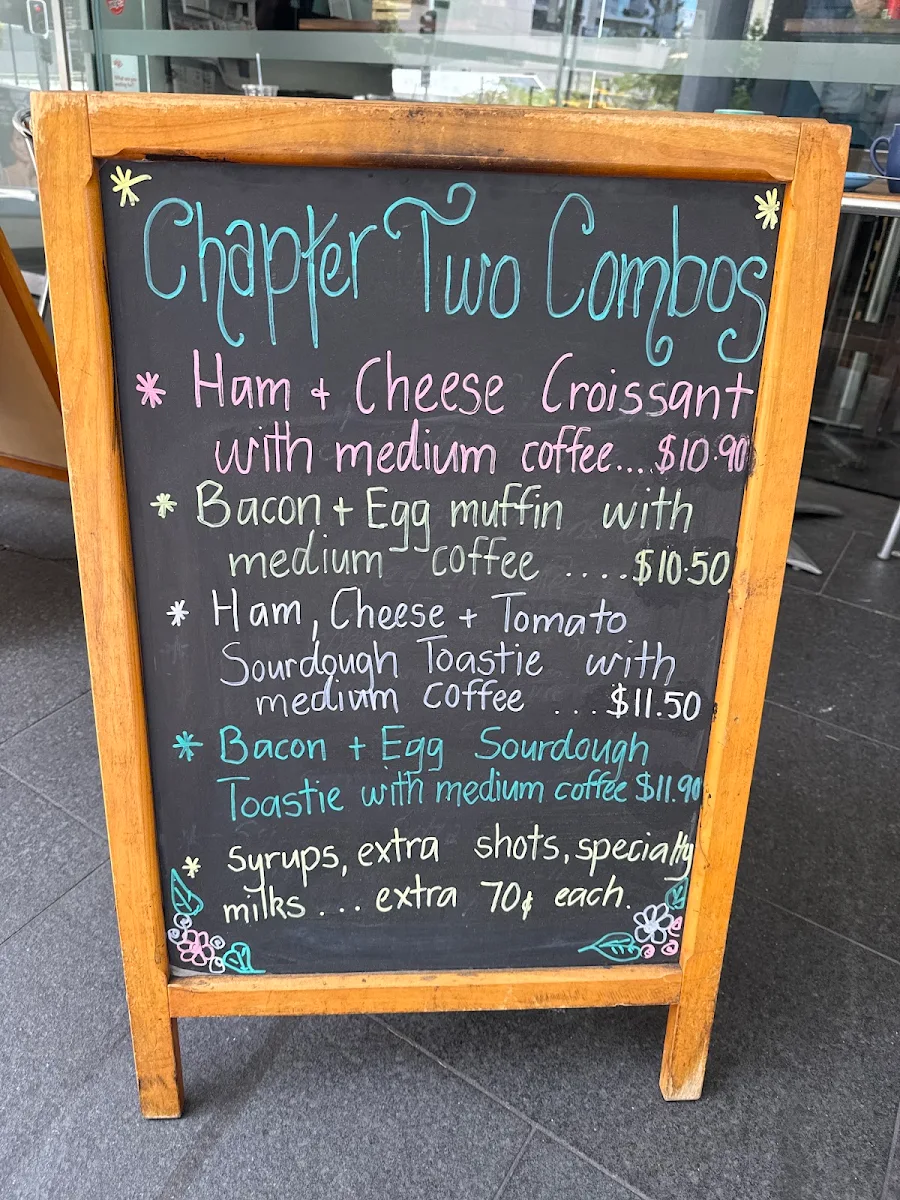 Chapter Two Combos
* Ham + Cheese Croissant
with medium coffee... $10.90
* Bacon + Egg muffin with
medium coffee ....$10.50
* Ham, Cheese + Tomato
Sourdough Toastie with
medium coffee ...$11.50
* Bacon + Egg Sourdough
Toastie with medium coffee $11.90
* syrups, extra shots, specialty
milks... extra 70¢ each.